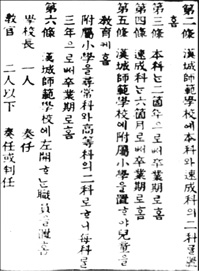 第二條 漢城師範學校에本科와速成科의二科를置
홈
第三條 本科는二箇年으로써卒業期로홈
第四條 速成科는六箇月로써卒業期로홈
第五條 漢城師範學校에附屬小學을置ᄒᆞ야兒童을
敎育케홈
附屬小學을尋常科와高等科의二科로ᄒᆞ니每科를
三年으로써卒業期로홈
第六條 漢城師範學校에左開ᄒᆞᄂᆞᆫ職員을置홈
學校長 一人 奏任
敎官 二人以下 奏任或判任